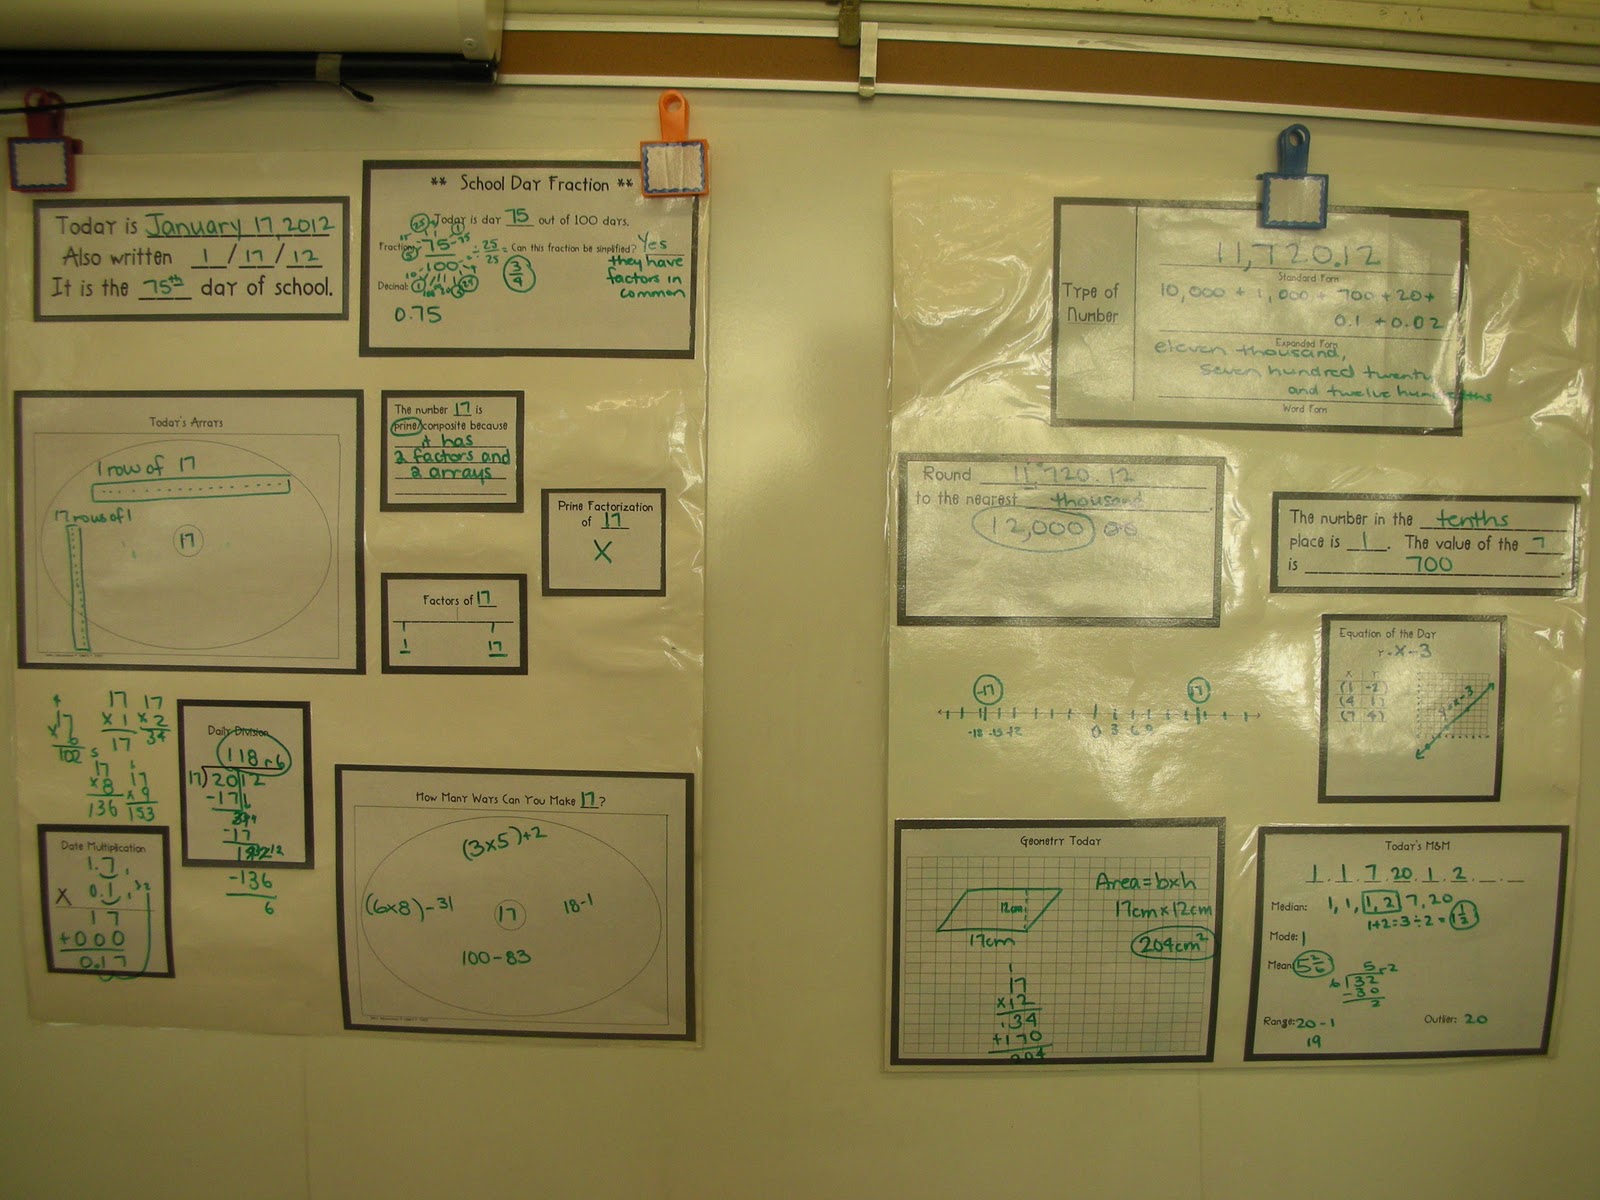 Today is January 17, 2012
Also written 1 / 17 / 12
It is the 75th day of school.
** School Day Fraction **
Today is day 75 out of 100 days.
Fraction: 75 ÷ 25 = Can this fraction be simplified? Yes
100 25
3
4
they have
factors in
common
Decimal:
0.75
Today's Arrays
1 row of 17
17 rows of 1
17
The number 17 is
prime/composite because
it has
2 factors and
2 arrays
Prime Factorization
of 17
X
Factors of 17
1 17
17
x 6
102
17
x 1
17
17
x 2
34
17
x 8
136
17
x 9
153
Daily Division
118 r 6
17)2012
-17
-17
-136
6
Date Multiplication
1.7
X 0.1
17
+000
0.17
How Many Ways Can You Make 17?
(3x5)+2
(6x8)-31
17
18-1
100-83
Type of
Number
11,720.12
Standard Form
10,000 + 1,000 + 700 + 20 +
0.1 + 0.02
Expanded Form
eleven thousand,
seven hundred twenty
and twelve hundredths
Word Form
Round 11,720.12
to the nearest thousand.
12,000
The number in the tenths
place is 1. The value of the 7
is 700.
-17 17
-18 -15 -12 0 3 6 9
Equation of the Day
Y=X-3
X Y
(1 -2)
(4 1)
(7 4)
y=x-3
Geometry Today
12cm
17cm
Area=bxh
17cm x 12cm
204cm²
1
17
x12
34
+170
204
Today's M&M
1 1 7 20 1 2
Median: 1, 1, 1, 2, 7, 20
1+2=3÷2= 1 1/2
Mode: 1
Mean: 5 2/6
5 r2
6)32
-30
2
Range: 20-1
19
Outlier: 20